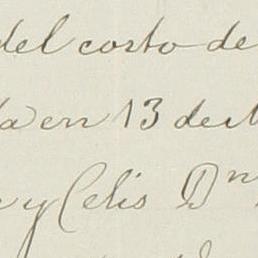 del costo de
da en 13 de M
y Celis Dn